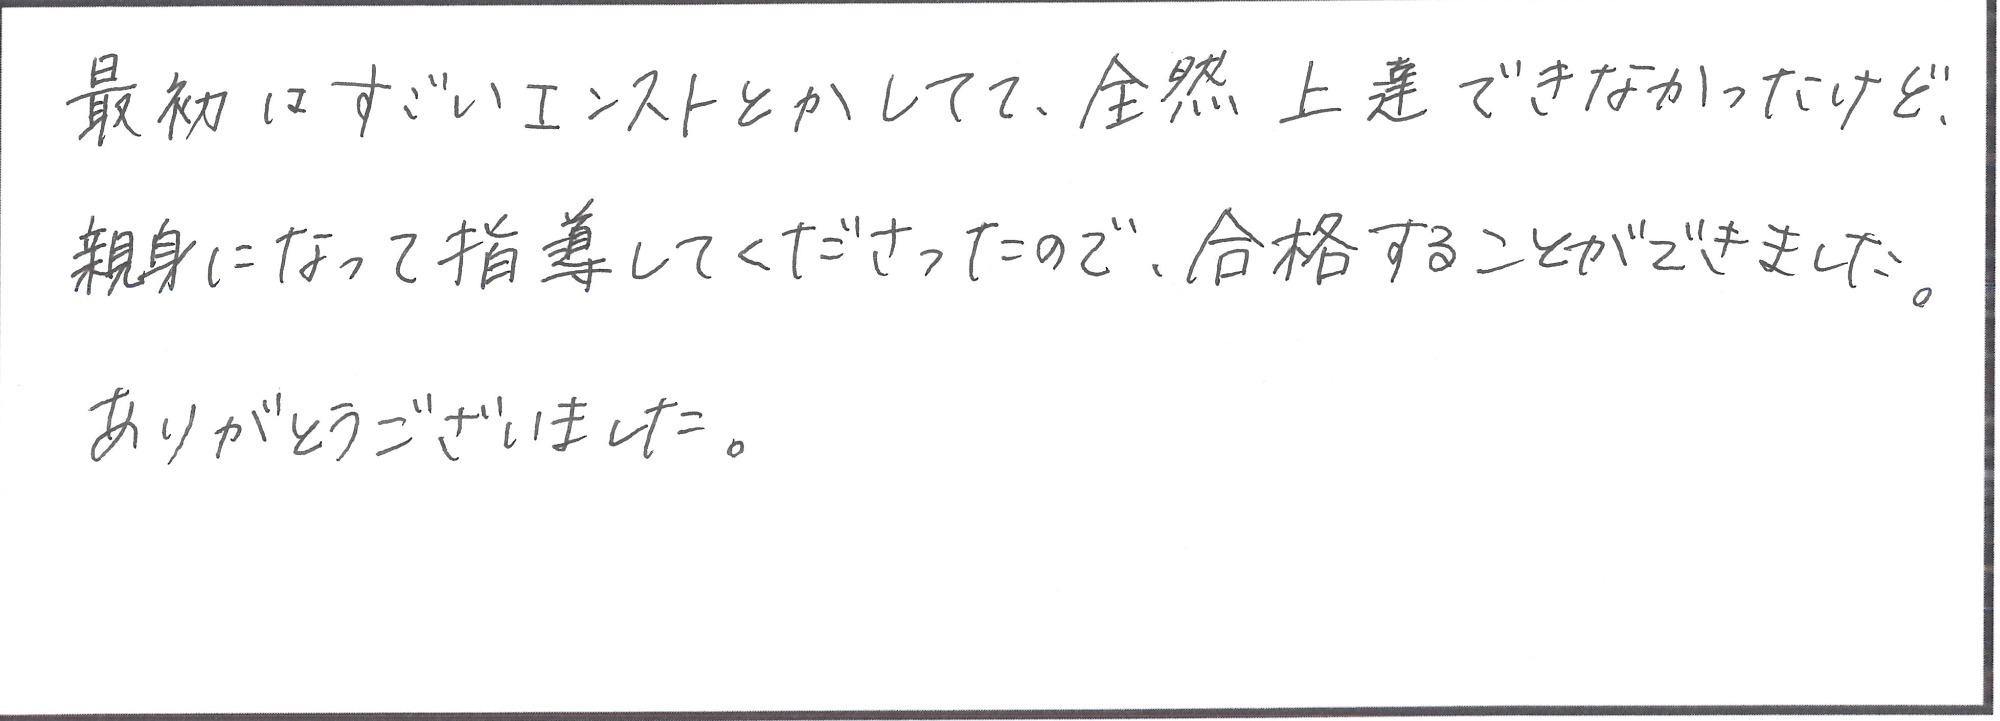 最初はすごいエンストとかしてて、全然上達できなかったけど、
親身になって指導してくださったので、合格することができました。
ありがとうございました。